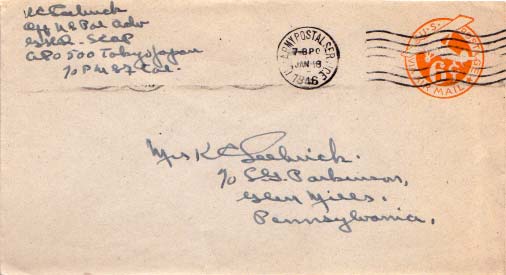 KC Seebrick
Off U S Pol Adv
GHQ - SCAP
APO 500 Tokyo Japan
℅ P M S F Cal.
U.S. ARMY POSTAL SERVICE
7-8 PM
JAN 18
1946
U.S. POSTAGE
VIA AIR MAIL
6¢
Mrs K C Seebrick.
℅ S. G. Parkinson,
Glen Mills.
Pennsylvania.